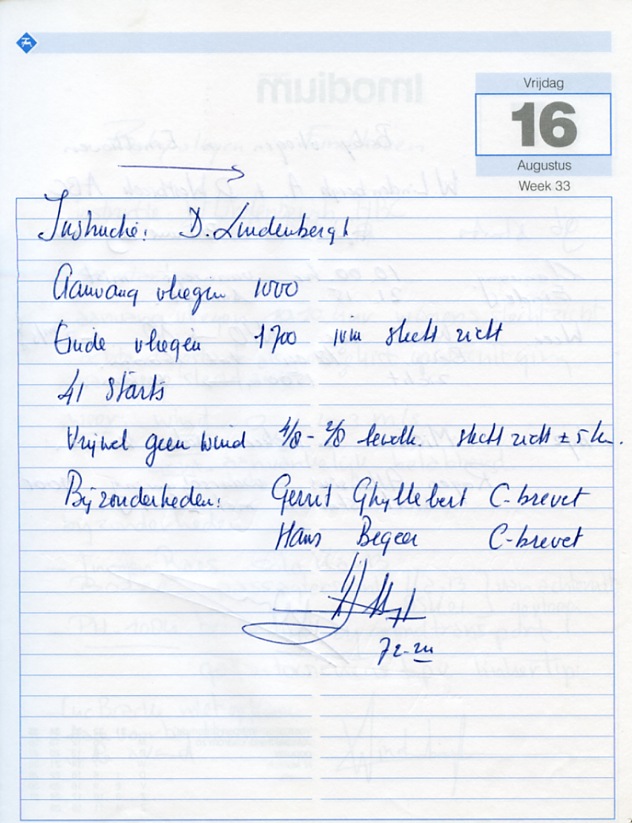 Vrijdag
16
Augustus
Week 33
Instructie: D. Lindenbergh
Aanvang vliegen 1000
Einde vliegen 1700 ivm slecht zicht
41 Starts
Vrijwel geen wind 1/8 - 2/8 bewolk. slecht zicht ± 5 km.
Bijzonderheden: Gerrit Ghyllebert C-brevet
Hans Begeer C-brevet